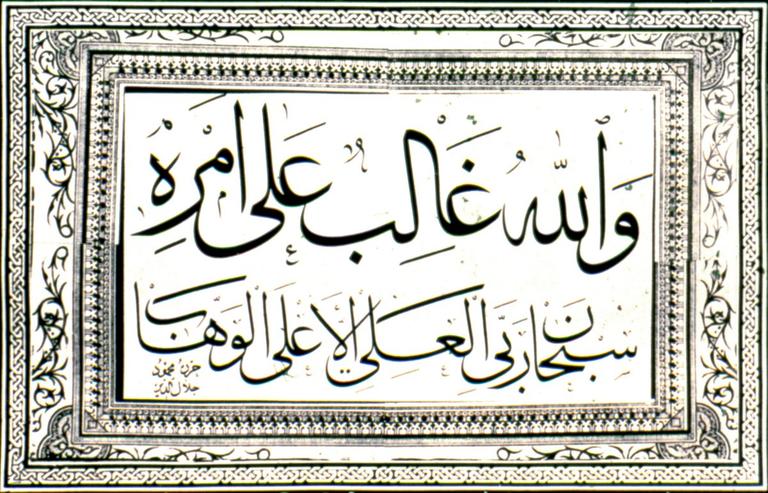 وَاللهُ غَالِبٌ عَلَى اَمْرِهِ
سبحان ربى العلى الاعلى الوهاب
حرره محمود
جلال الدين